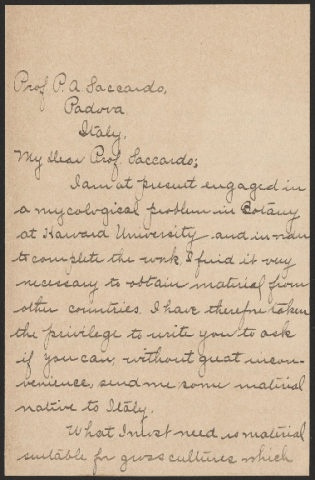 Prof. P. A. Saccardo,
Padova
Italy.
My dear Prof. Saccardo;
I am at present engaged in
a mycological problem in Botany
at Harvard University and in order
to complete the work, I find it very
necessary to obtain material from
other countries. I have therefore taken
the privilege to write you to ask
if you can, without great incon-
venience, send me some material
native to Italy.
What I most need is material
suitable for gross cultures which